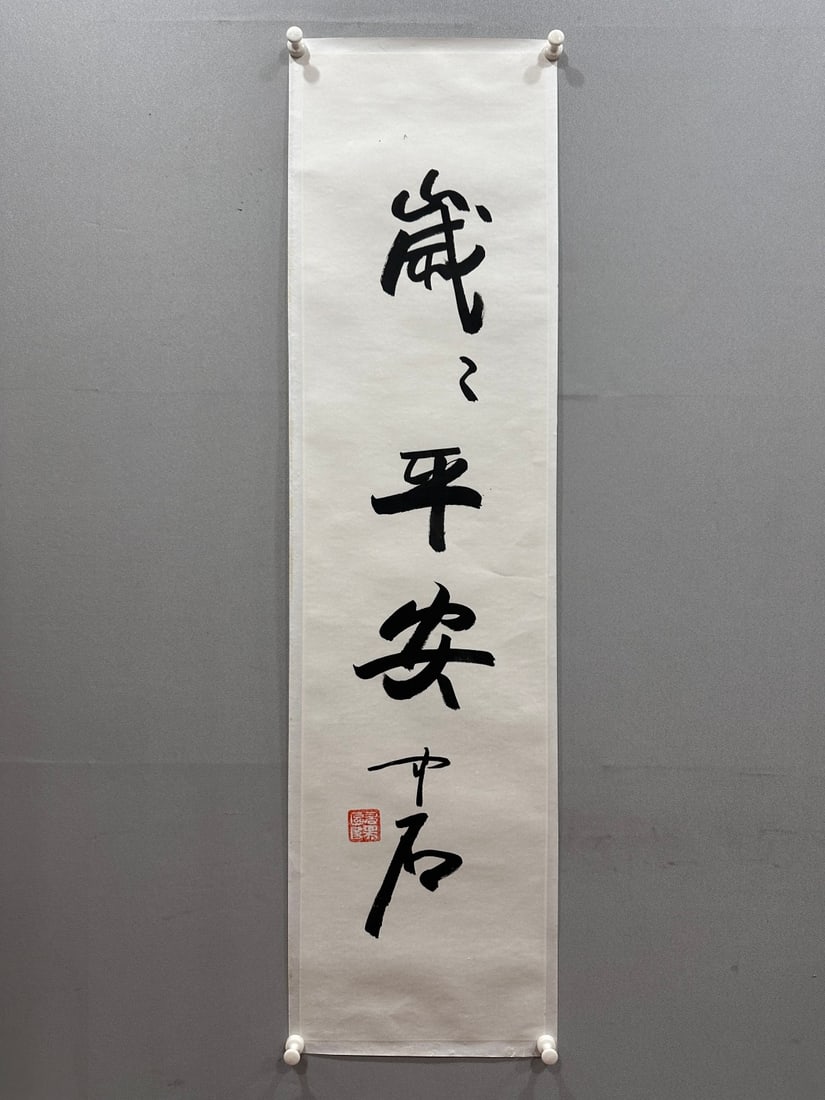 歲〻平安
中石